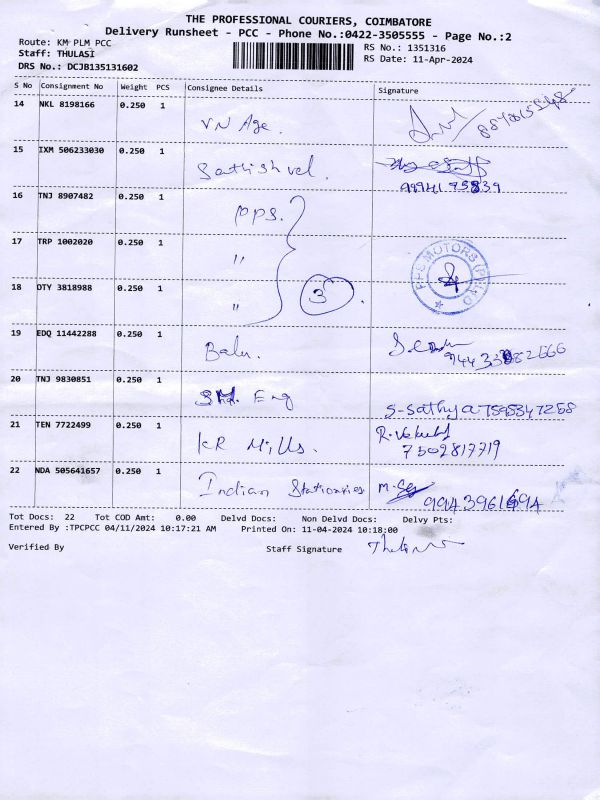 THE PROFESSIONAL COURIERS, COIMBATORE
Delivery Runsheet - PCC - Phone No.:0422-3505555 - Page No.:2
Route: KM PLM PCC
RS No.: 1351316
Staff: THULASI
RS Date: 11-Apr-2024
DRS No.: DCJB135131602
S No Consignment No Weight PCS Consignee Details Signature
14 NKL 8198166 0.250 1 VN Age.
15 IXM 506233030 0.250 1 Sathishvel.
16 TNJ 8907482 0.250 1 PPS.
17 TRP 1002020 0.250 1 "
18 OTY 3818988 0.250 1 " 3
PPS MOTORS (P) LTD
19 EDQ 11442288 0.250 1 Balu.
20 TNJ 9830851 0.250 1 Eng S-Sathya 7598347258
21 TEN 7722499 0.250 1 KR Mills. 7502817719
22 NDA 505641657 0.250 1 Indian Stationries
Tot Docs: 22 Tot COD Amt: 0.00 Delvd Docs: Non Delvd Docs: Delvy Pts:
Entered By :TPCPCC 04/11/2024 10:17:21 AM Printed On: 11-04-2024 10:18:00
Verified By Staff Signature